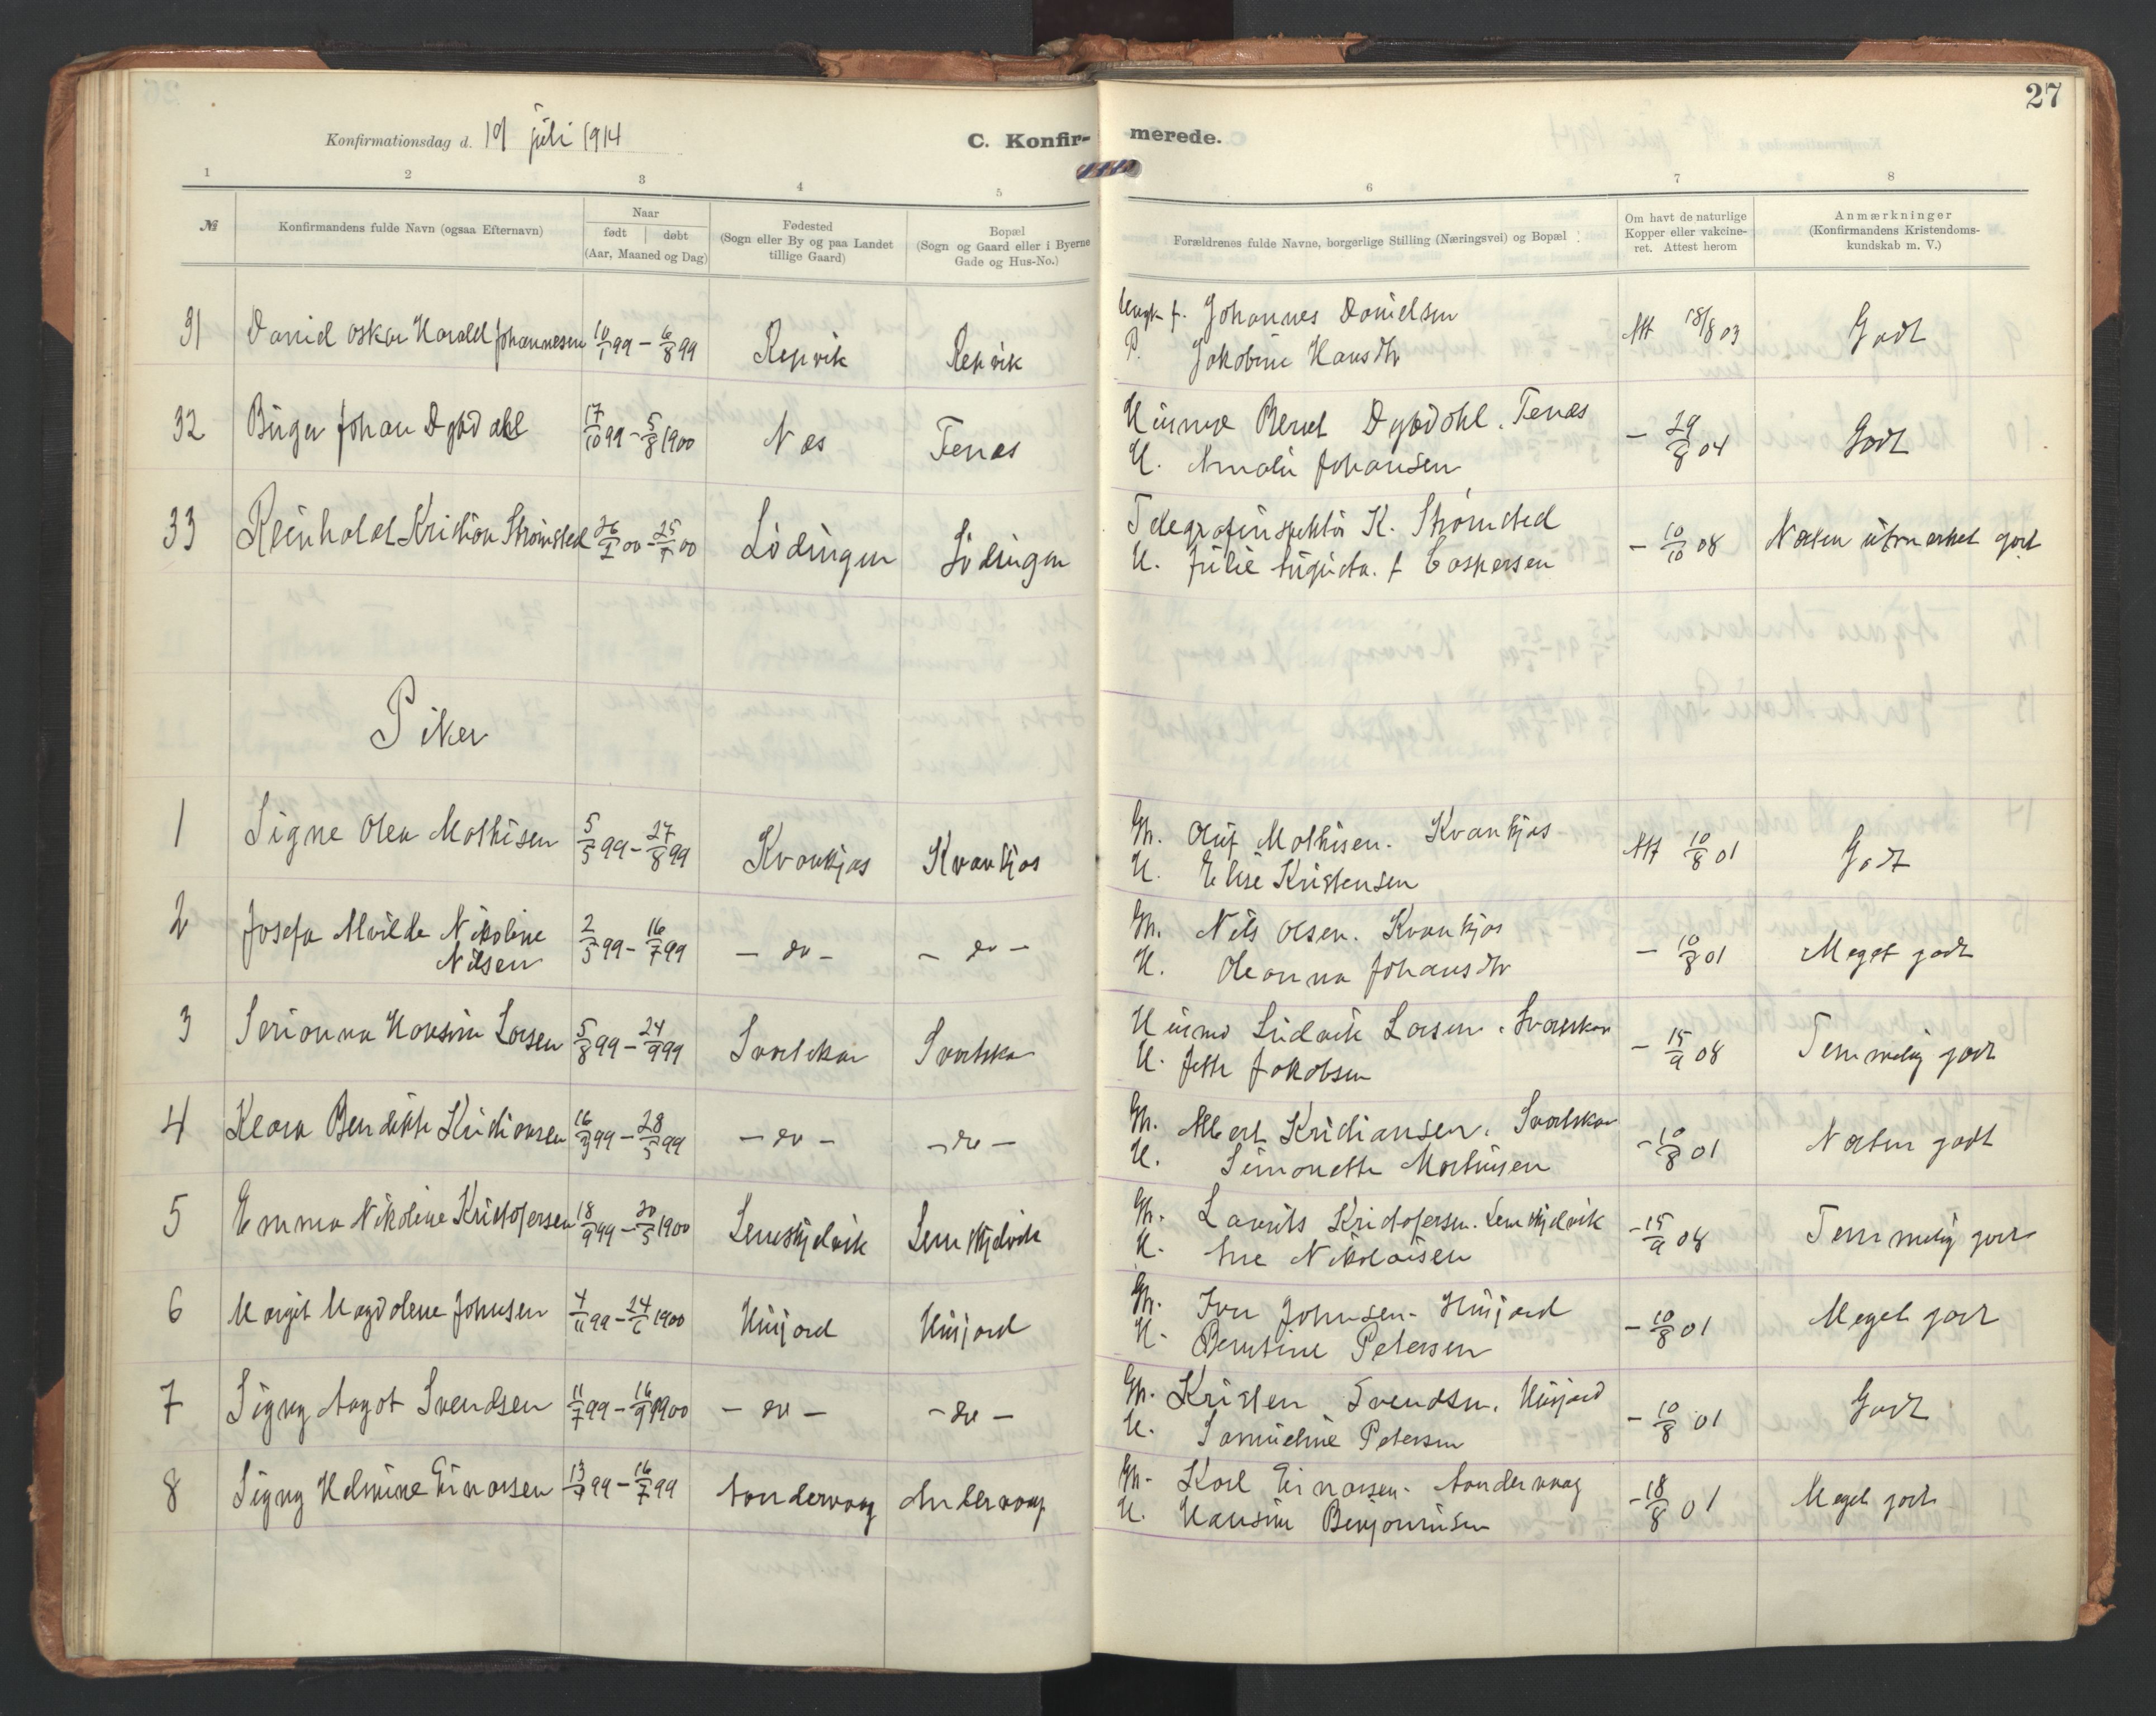 27
Konfirmationsdag d. 19 juli 1914
C. Konfir- merede.
1 2 3 4 5 6 7 8
№ Konfirmandens fulde Navn (ogsaa Efternavn)
Naar
født døbt
(Aar, Maaned og Dag)
Fødested
(Sogn eller By og paa Landet
tillige Gaard)
Bopæl
(Sogn og Gaard eller i Byerne
Gade og Hus-No.)
Forældrenes fulde Navne, borgerlige Stilling (Næringsvei) og Bopæl
Om havt de naturlige
Kopper eller vakcine-
ret. Attest herom
Anmærkninger
(Konfirmandens Kristendoms-
kundskab m. V.)
31 David Oskar Harald Johannesen 10/1 99 - 6/8 99 Repvik Repvik
Ungk f. Johannes Danielsen
P. Jakobine Hansdtr
Att 18/8 03 Godt
32 Birger Johan Dybdahl 17/10 99 - 5/8 1900 Nes Fenes
Husmd Bernt Dybdahl. Fenes
H. Amalie Johansen
- 29/8 04 Godt
33 Reinholdt Kristian Strømsted 26/2 00 - 25/7 00 Lødingen Lødingen
Telegrafinspektør K. Strømsted
H. Julie Augusta f Caspersen
- 10/10 08 Næsten utmerket godt
Piker
1 Signe Olea Mathisen 5/5 99 - 27/8 99 Kvankjos Kvankjos
Gm. Oluf Mathisen. Kvankjos
H. Elise Kristensen
Att 10/8 01 Godt
2 Josefa Alvilde Nikoline
Nilsen
2/5 99 - 16/7 99 - do - - do -
Gm. Nils Olsen. Kvankjos
H. Oleanna Johansdtr
- 10/8 01 Meget godt
3 Serianna Hansine Larsen 5/8 99 - 24/9 99 Svartskar Svartskar
Husmd Ludvik Larsen. Svartskar
H. Jette Jakobsen
- 15/9 08 Temmelig godt
4 Klara Bendikte Kristiansen 16/3 99 - 28/5 99 - do - - do -
Gm. Albert Kristiansen. Svartskar
H. Simonette Martinsen
- 10/8 01 Næsten godt
5 Emma Nikoline Kristofersen 18/9 99 - 20/5 1900 Lemskjelvik Lemskjelvik
Gm. Lavrits Kristofersen. Lemskjelvik
H. Ane Nikolaisen
- 15/9 08 Temmelig godt
6 Margit Magdalene Johnsen 4/11 99 - 24/6 1900 Husjord Husjord
Gm. Iver Johnsen - Husjord
H. Berntine Petersen
- 10/8 01 Meget godt
7 Signy Aagot Svendsen 11/7 99 - 16/9 1900 - do - - do -
Gm. Kristen Svendsen. Husjord
H. Samueline Petersen
- 10/8 01 Godt
8 Signy Helmine Einarsen 13/4 99 - 16/7 99 Aandervaag Andervaag
Gm. Karl Einarsen - Aandervaag
H. Hansine Benjaminsen
- 18/8 01 Meget godt